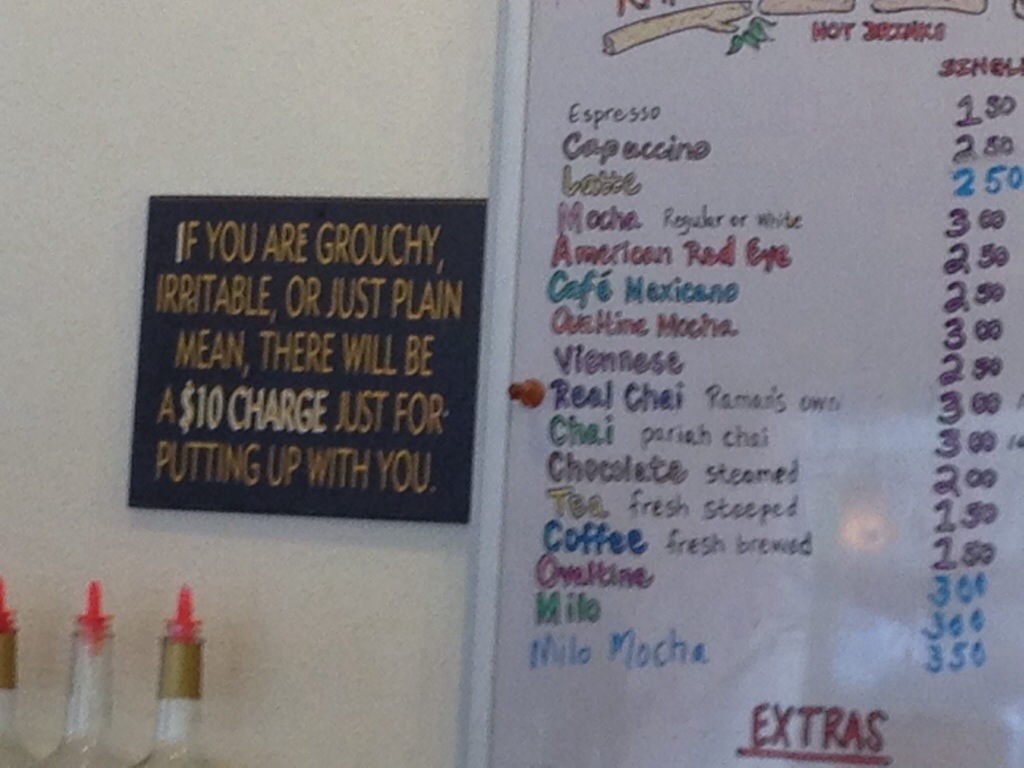 IF YOU ARE GROUCHY,
IRRITABLE, OR JUST PLAIN
MEAN, THERE WILL BE
A $10 CHARGE JUST FOR
PUTTING UP WITH YOU.
HOT DRINKS
SINGL
Espresso 1 50
Capuccino 2 50
Latte 2 50
Mocha Regular or white 3 00
American Red Eye 2 50
Café Mexicano 2 50
Ovaltine Mocha 3 00
Viennese 2 50
Real Chai Raman's own 3 00
Chai pariah chai 3 00
Chocolate steamed 2 00
Tea fresh steeped 1 50
Coffee fresh brewed 1 50
Ovaltine 3 00
Milo 3 00
Milo Mocha 3 50
EXTRAS